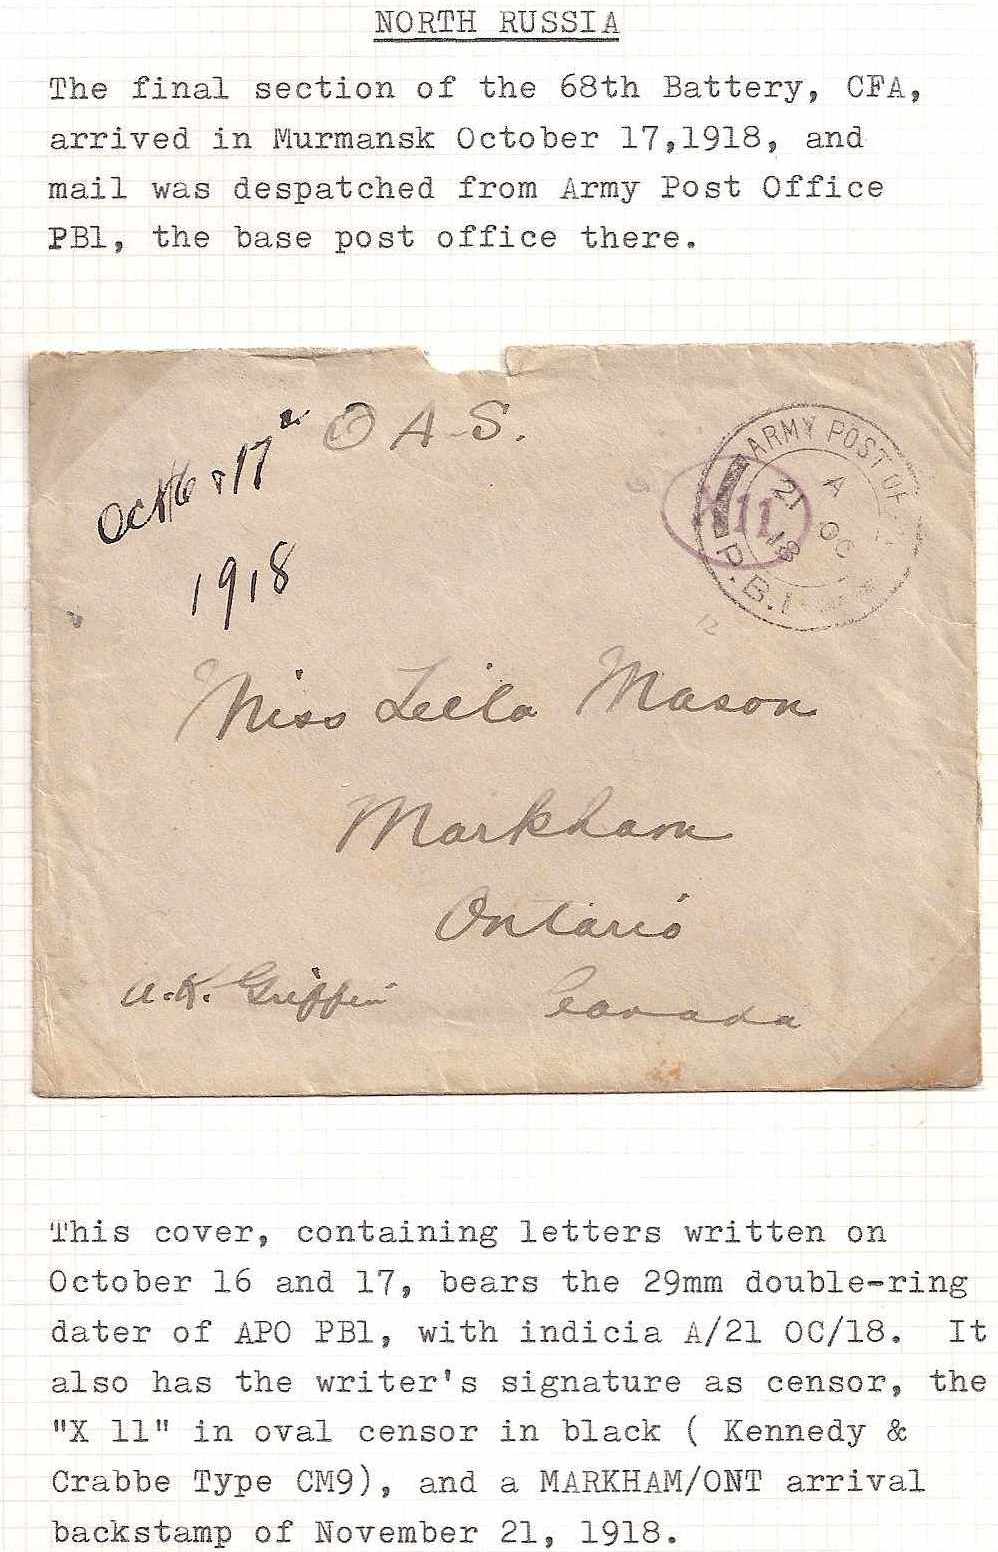 NORTH RUSSIA
The final section of the 68th Battery, CFA,
arrived in Murmansk October 17,1918, and
mail was despatched from Army Post Office
PB1, the base post office there.
O A.S.
17
1918
ARMY POST OF
A
21 OC
18
P.B.1
X11
12
Miss Leila Mason
Markham
Ontario
A.K. Griffin
Canada
This cover, containing letters written on
October 16 and 17, bears the 29mm double-ring
dater of APO PB1, with indicia A/21 OC/18.  It
also has the writer's signature as censor, the
"X 11" in oval censor in black ( Kennedy &
Crabbe Type CM9), and a MARKHAM/ONT arrival
backstamp of November 21, 1918.